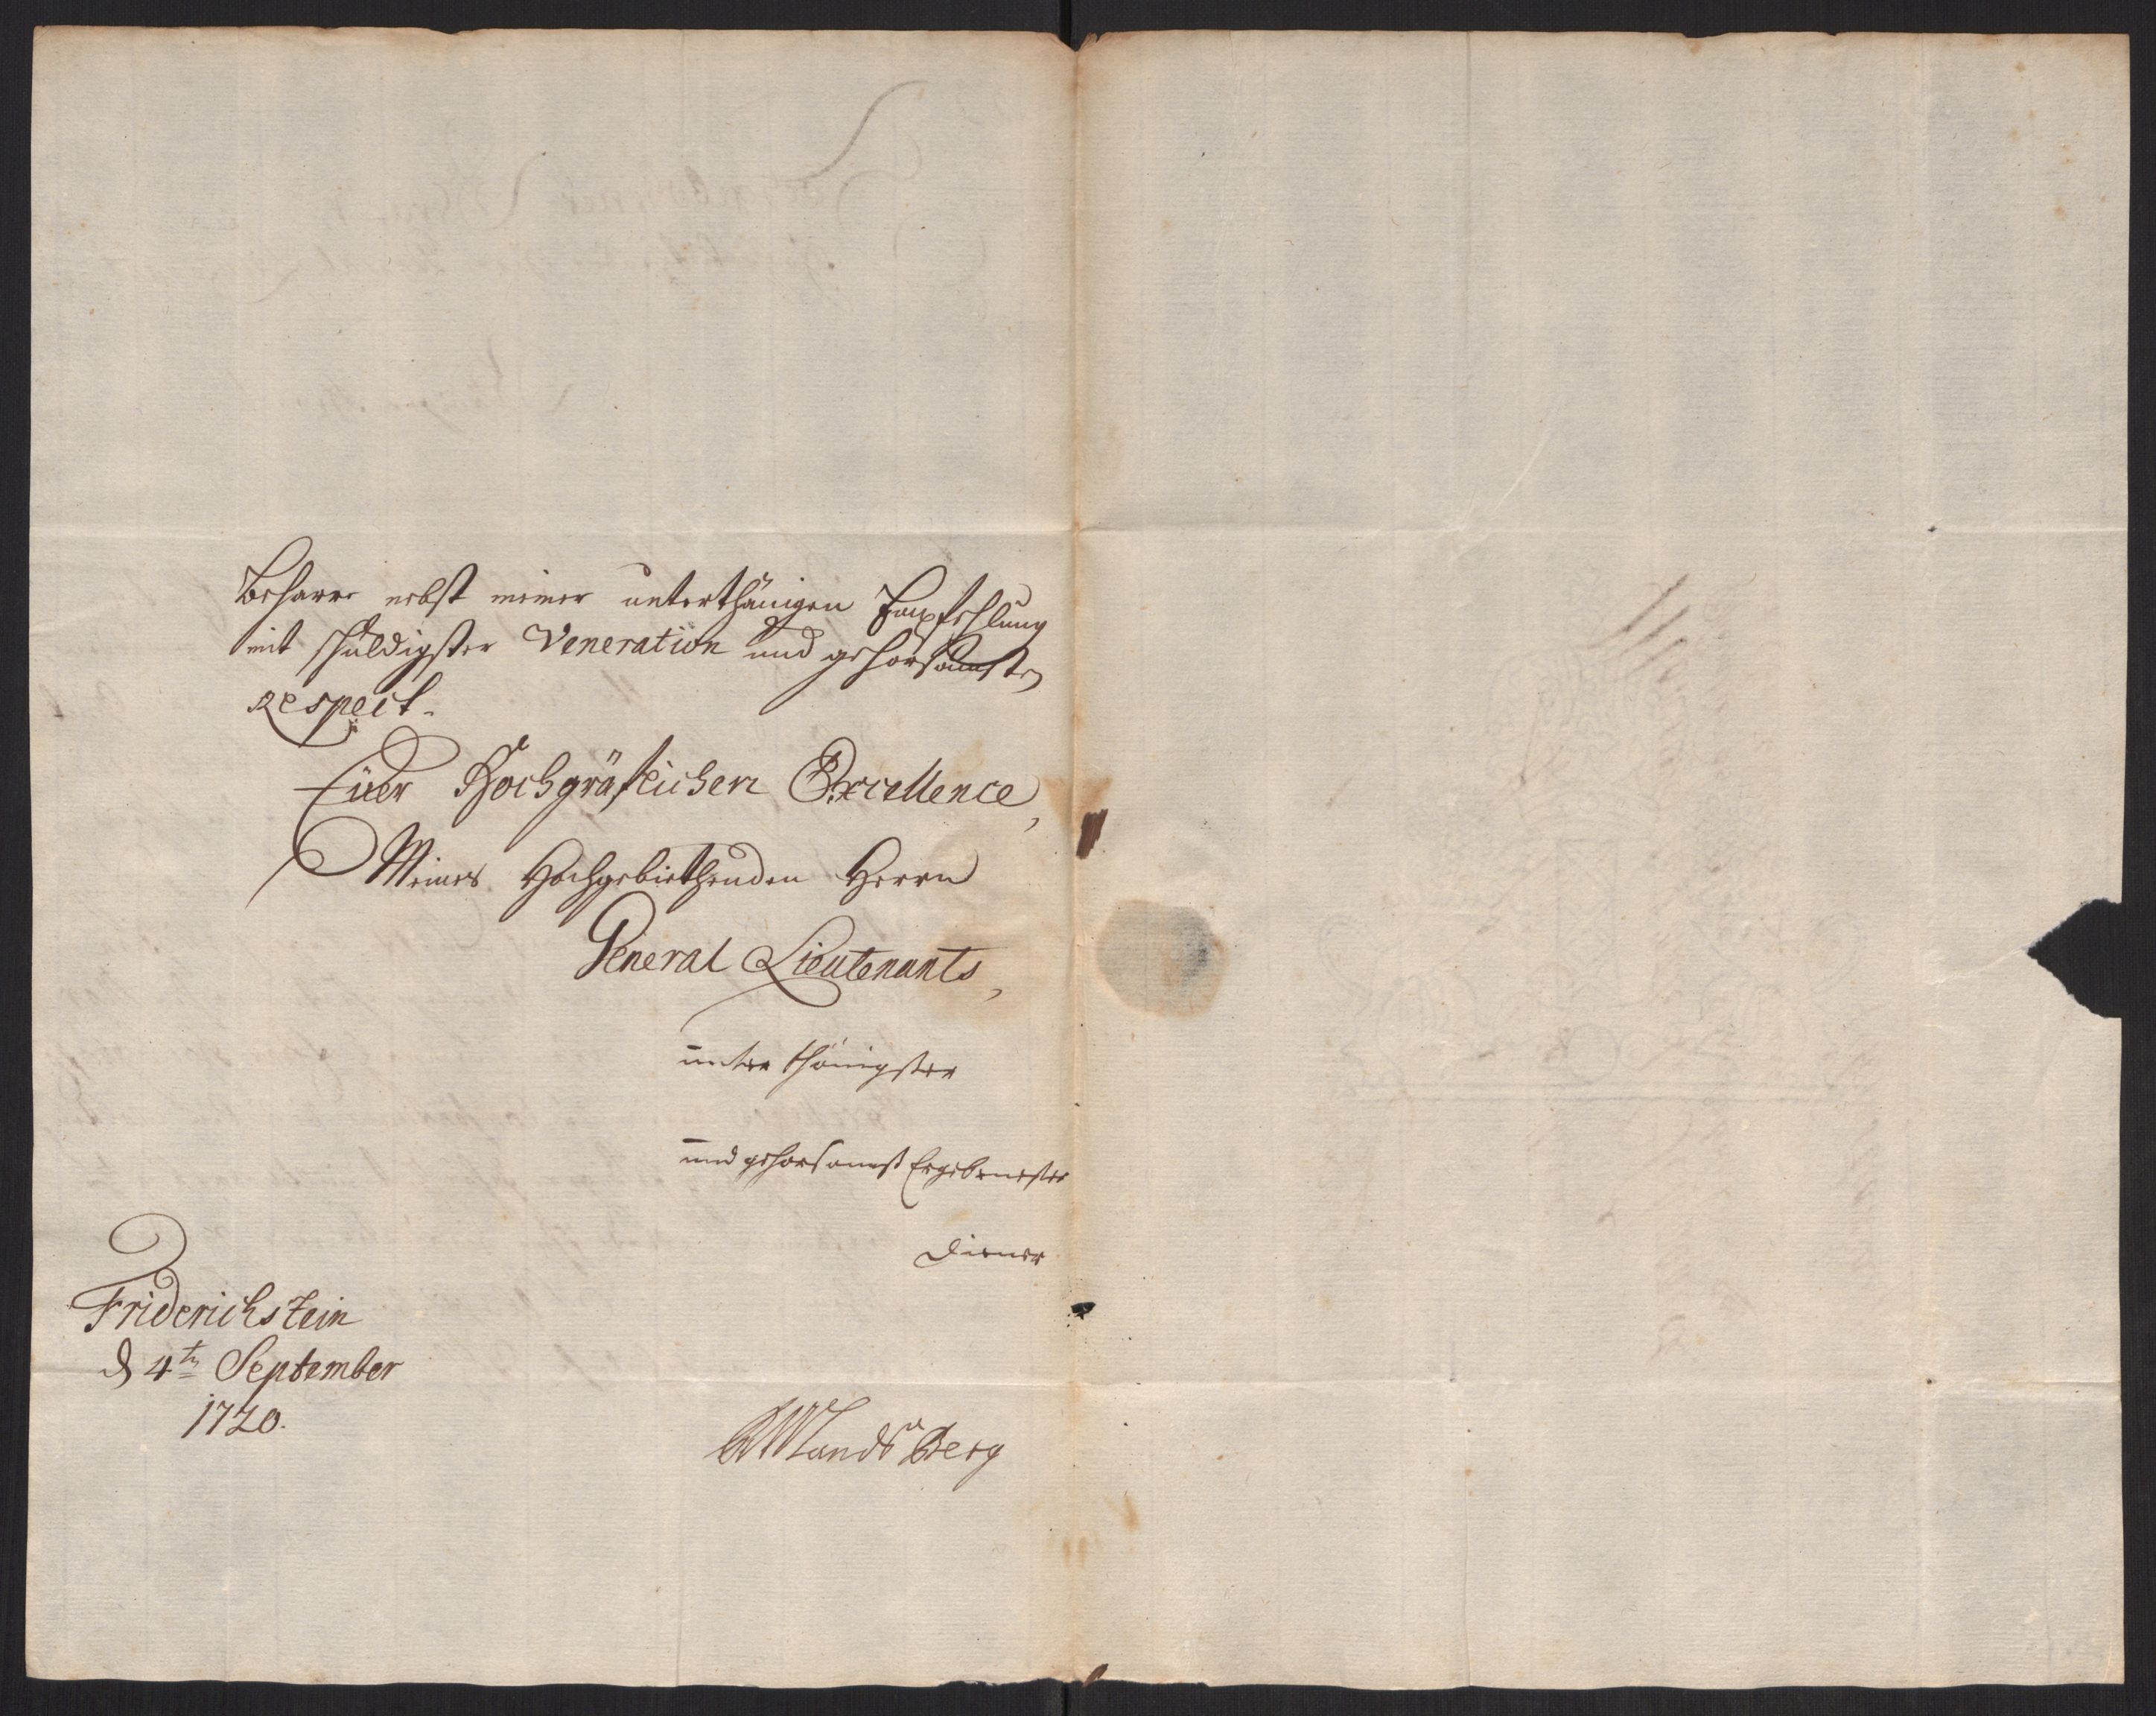 beharre nebst meiner unterthänigen Empfehlung
mit schuldigster Veneration und gehorsamsten
respect.
Eüer Hochgräflichen Excellence,
Meines Hochgebiethenden Herrn
General Lieutenants,
unterthänigster
und gehorsamst Ergebenester
Diener
Friderichstein
d 4tn September
1720.
LandsBerg